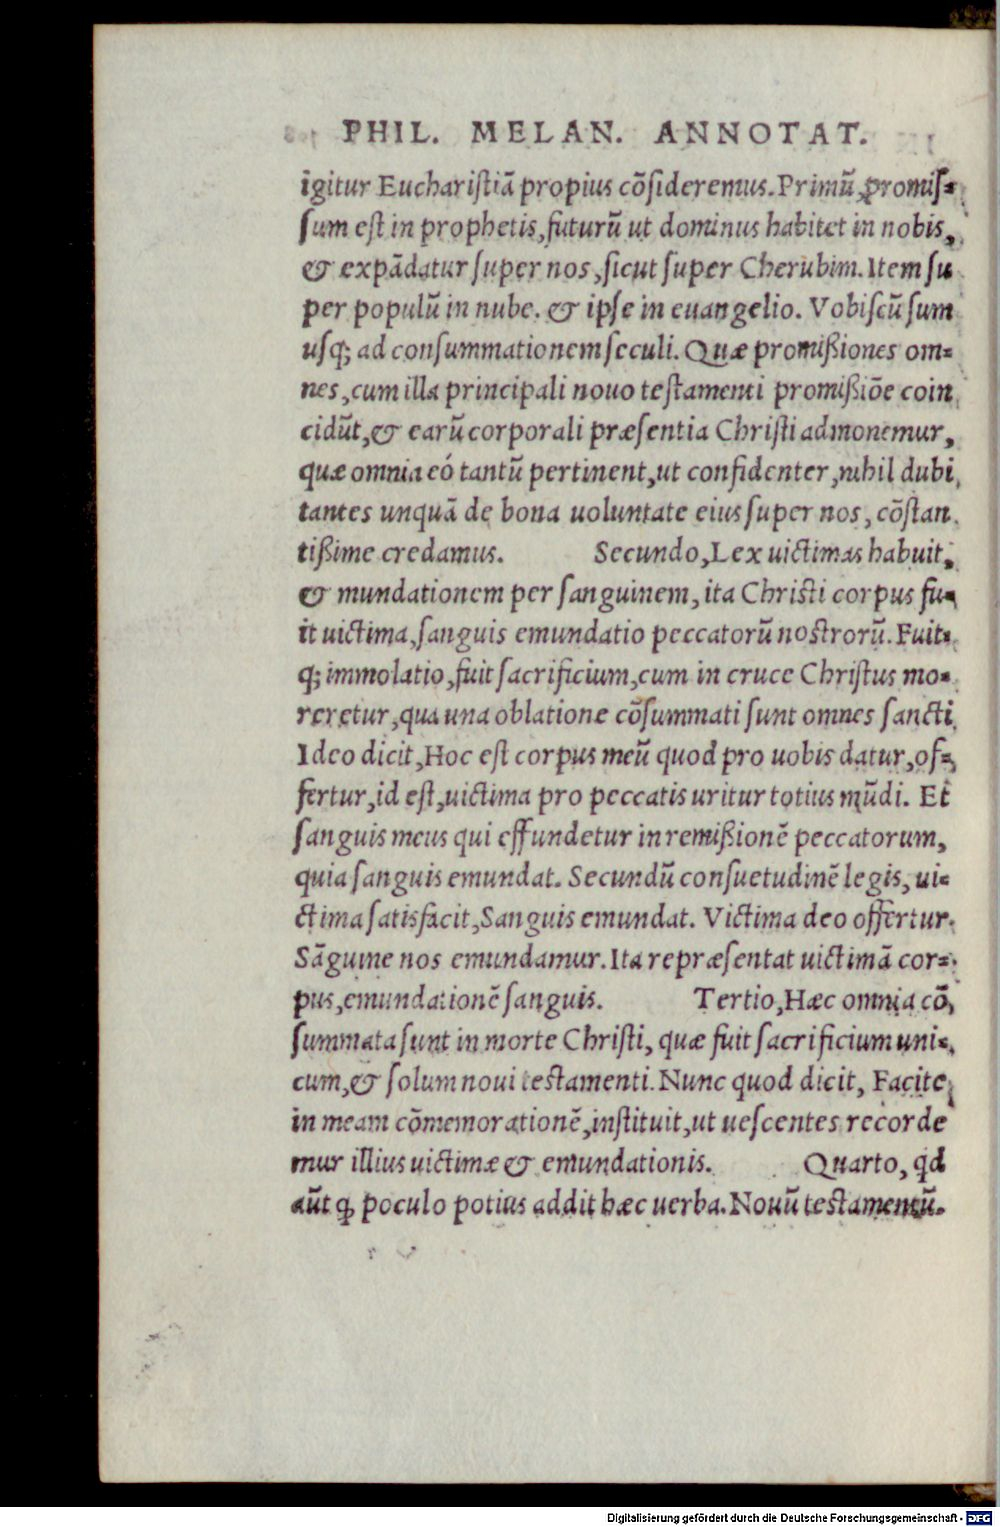 PHIL. MELAN. ANNOTAT.
igitur Euchariſtiã propius cõſideremus. Primũ ꝓmiſ⸗
ſum eſt in prophetis, futurũ ut dominus habitet in nobis,
& expãdatur ſuper nos, ſicut ſuper Cherubim. Item ſu
per populũ in nube. & ipſe in euangelio. Vobiſcũ ſum
uſq; ad conſummationem ſeculi. Quæ promißiones om⸗
nes, cum illa principali nouo teſtamenti promißiõe coin
cidũt, & earũ corporali præſentia Chriſti admonemur,
quæ omnia eó tantũ pertinent, ut confidenter, nihil dubi
tantes unquã de bona uoluntate eius ſuper nos, cõſtan
tißime credamus. Secundo, Lex uictimas habuit,
& mundationem per ſanguinem, ita Chriſti corpus fu⸗
it uictima, ſanguis emundatio peccatorũ noſtrorũ. Fuit⸗
q; immolatio, fuit ſacrificium, cum in cruce Chriſtus mo⸗
reretur, qua una oblatione cõſummati ſunt omnes ſancti
Ideo dicit, Hoc eſt corpus meũ quod pro uobis datur, of⸗
fertur, id eſt, uictima pro peccatis uritur totius mũdi. Et
ſanguis meus qui effundetur in remißionẽ peccatorum,
quia ſanguis emundat. Secundũ conſuetudinẽ legis, ui⸗
ctima ſatisfacit, Sanguis emundat. Victima deo offertur.
Sãguine nos emundamur. Ita repræſentat uictimã cor⸗
pus, emundationẽ ſanguis. Tertio, Hæc omnia cõ
ſummata ſunt in morte Chriſti, quæ fuit ſacrificium uni⸗
cum, & ſolum noui teſtamenti. Nunc quod dicit, Facite
in meam cõmemorationẽ, inſtituit, ut ueſcentes recorde
mur illius uictimæ & emundationis. Quarto, qd
aũt ꝙ poculo potius addit hæc uerba. Nouũ teſtamentũ.
Digitalisierung gefördert durch die Deutsche Forschungsgemeinschaft - DFG